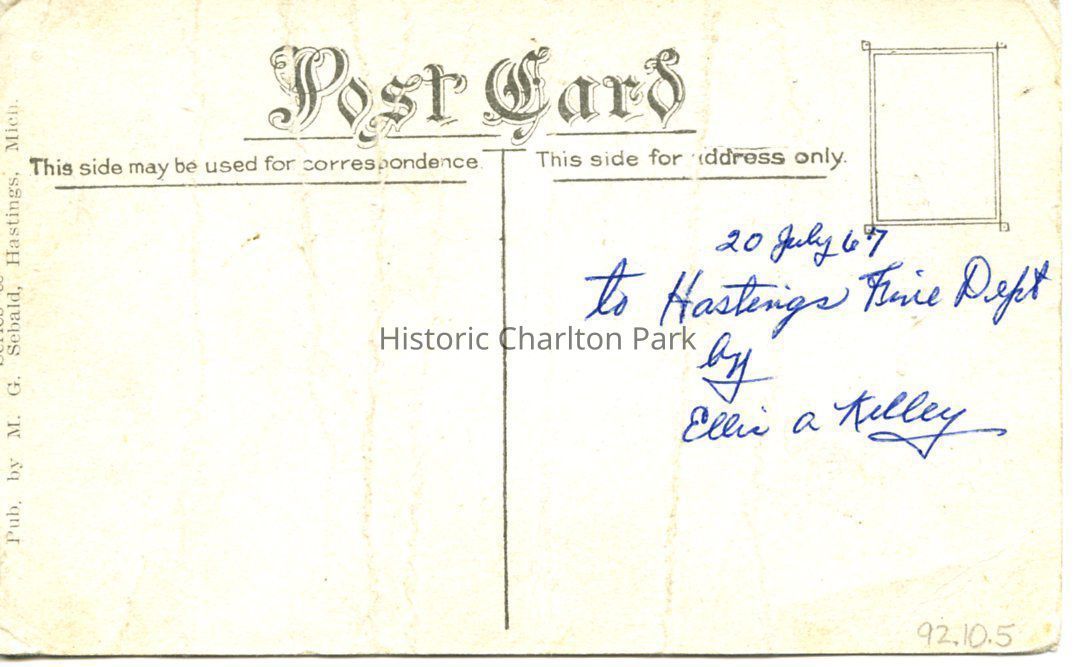 Post Card
This side may be used for correspondence.
This side for address only.
20 July 67
to Hastings Fire Dept
by
Ellis a Kelley
Historic Charlton Park
Pub. by M. G. Sebald, Hastings, Mich.
92.10.5